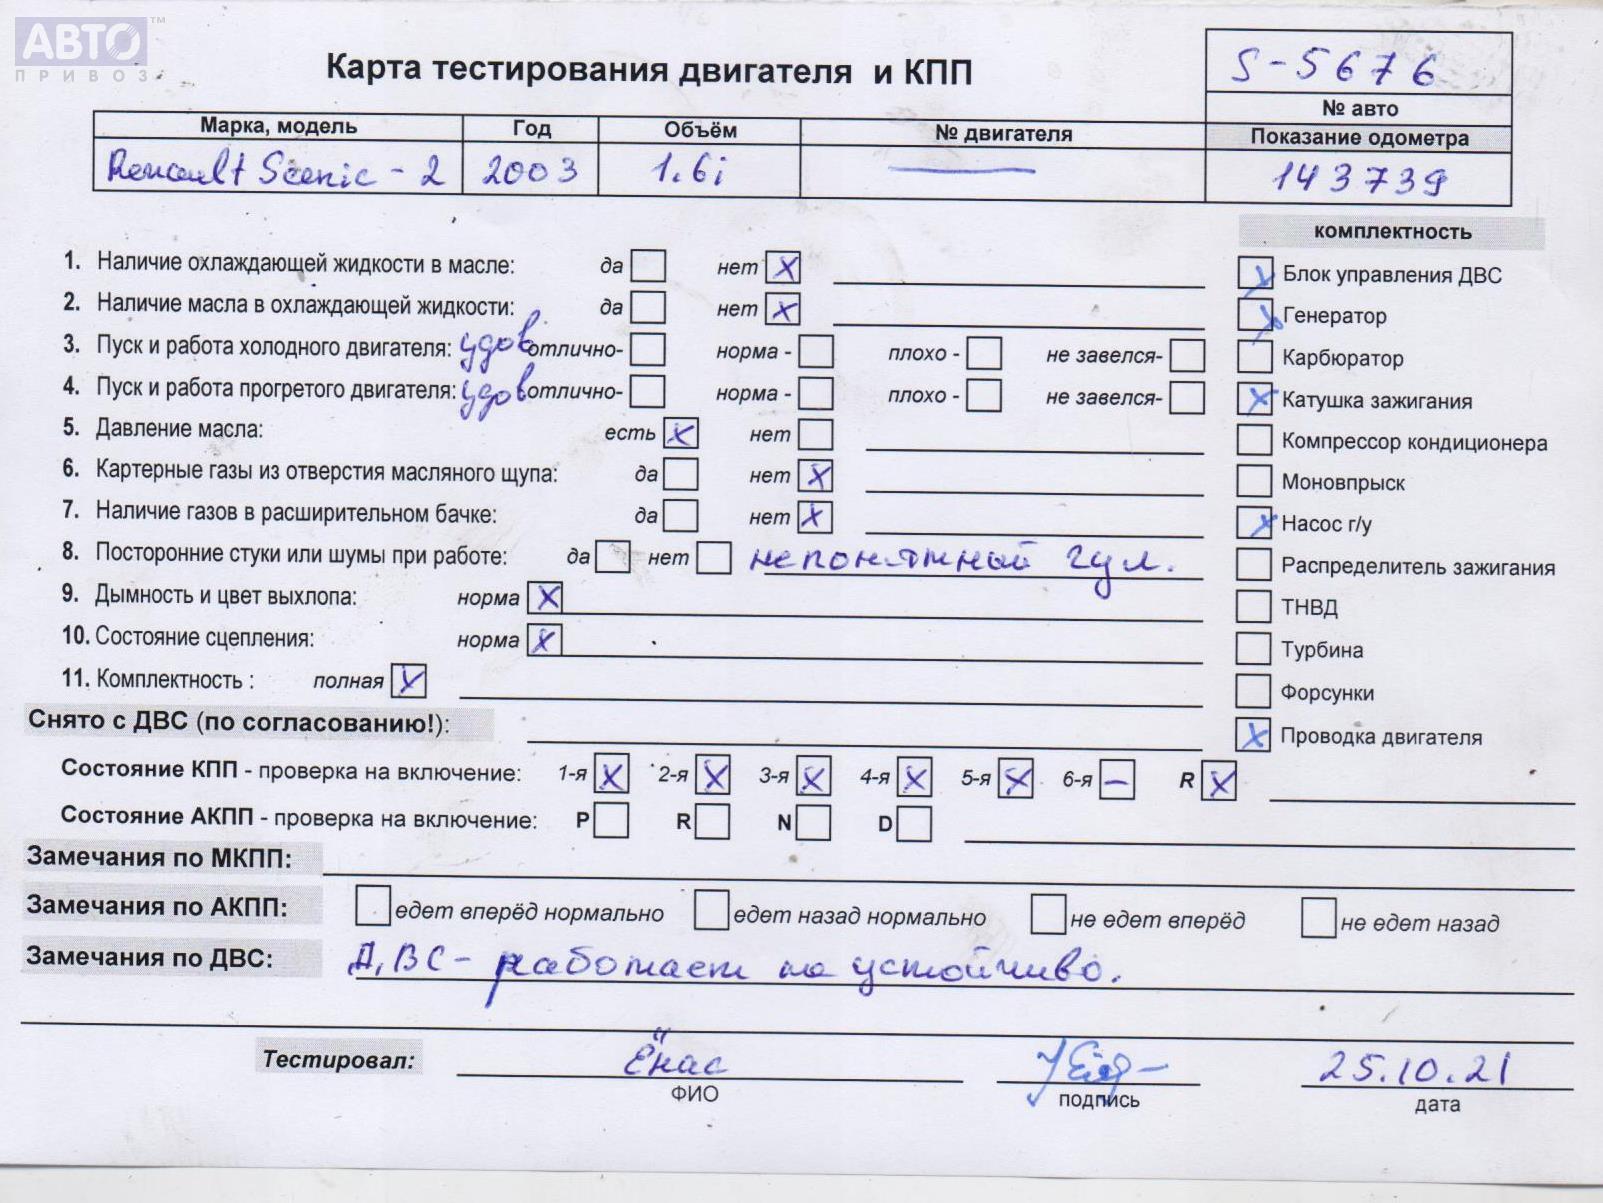 АВТО™
ПРИВОЗ
Карта тестирования двигателя и КПП
S-5676
№ авто
Марка, модель Год Объём № двигателя Показание одометра
Renault Scenic - 2 2003 1.6i — 143739
комплектность
1. Наличие охлаждающей жидкости в масле: да нет X
Блок управления ДВС X
2. Наличие масла в охлаждающей жидкости: да нет X
Генератор X
3. Пуск и работа холодного двигателя: удов отлично- норма - плохо - не завелся-
Карбюратор
4. Пуск и работа прогретого двигателя: удов отлично- норма - плохо - не завелся-
X Катушка зажигания
5. Давление масла: есть X нет
Компрессор кондиционера
6. Картерные газы из отверстия масляного щупа: да нет X
Моновпрыск
7. Наличие газов в расширительном бачке: да нет X
X Насос г/у
8. Посторонние стуки или шумы при работе: да нет непонятный гул.
Распределитель зажигания
9. Дымность и цвет выхлопа: норма X
ТНВД
10. Состояние сцепления: норма X
Турбина
11. Комплектность : полная X
Форсунки
Снято с ДВС (по согласованию!):
X Проводка двигателя
Состояние КПП - проверка на включение: 1-я X 2-я X 3-я X 4-я X 5-я X 6-я – R X
Состояние АКПП - проверка на включение: P R N D
Замечания по МКПП:
Замечания по АКПП: едет вперёд нормально едет назад нормально не едет вперёд не едет назад
Замечания по ДВС: ДВС - работает не устойчиво.
Тестировал: Ёнас 25.10.21
ФИО подпись дата